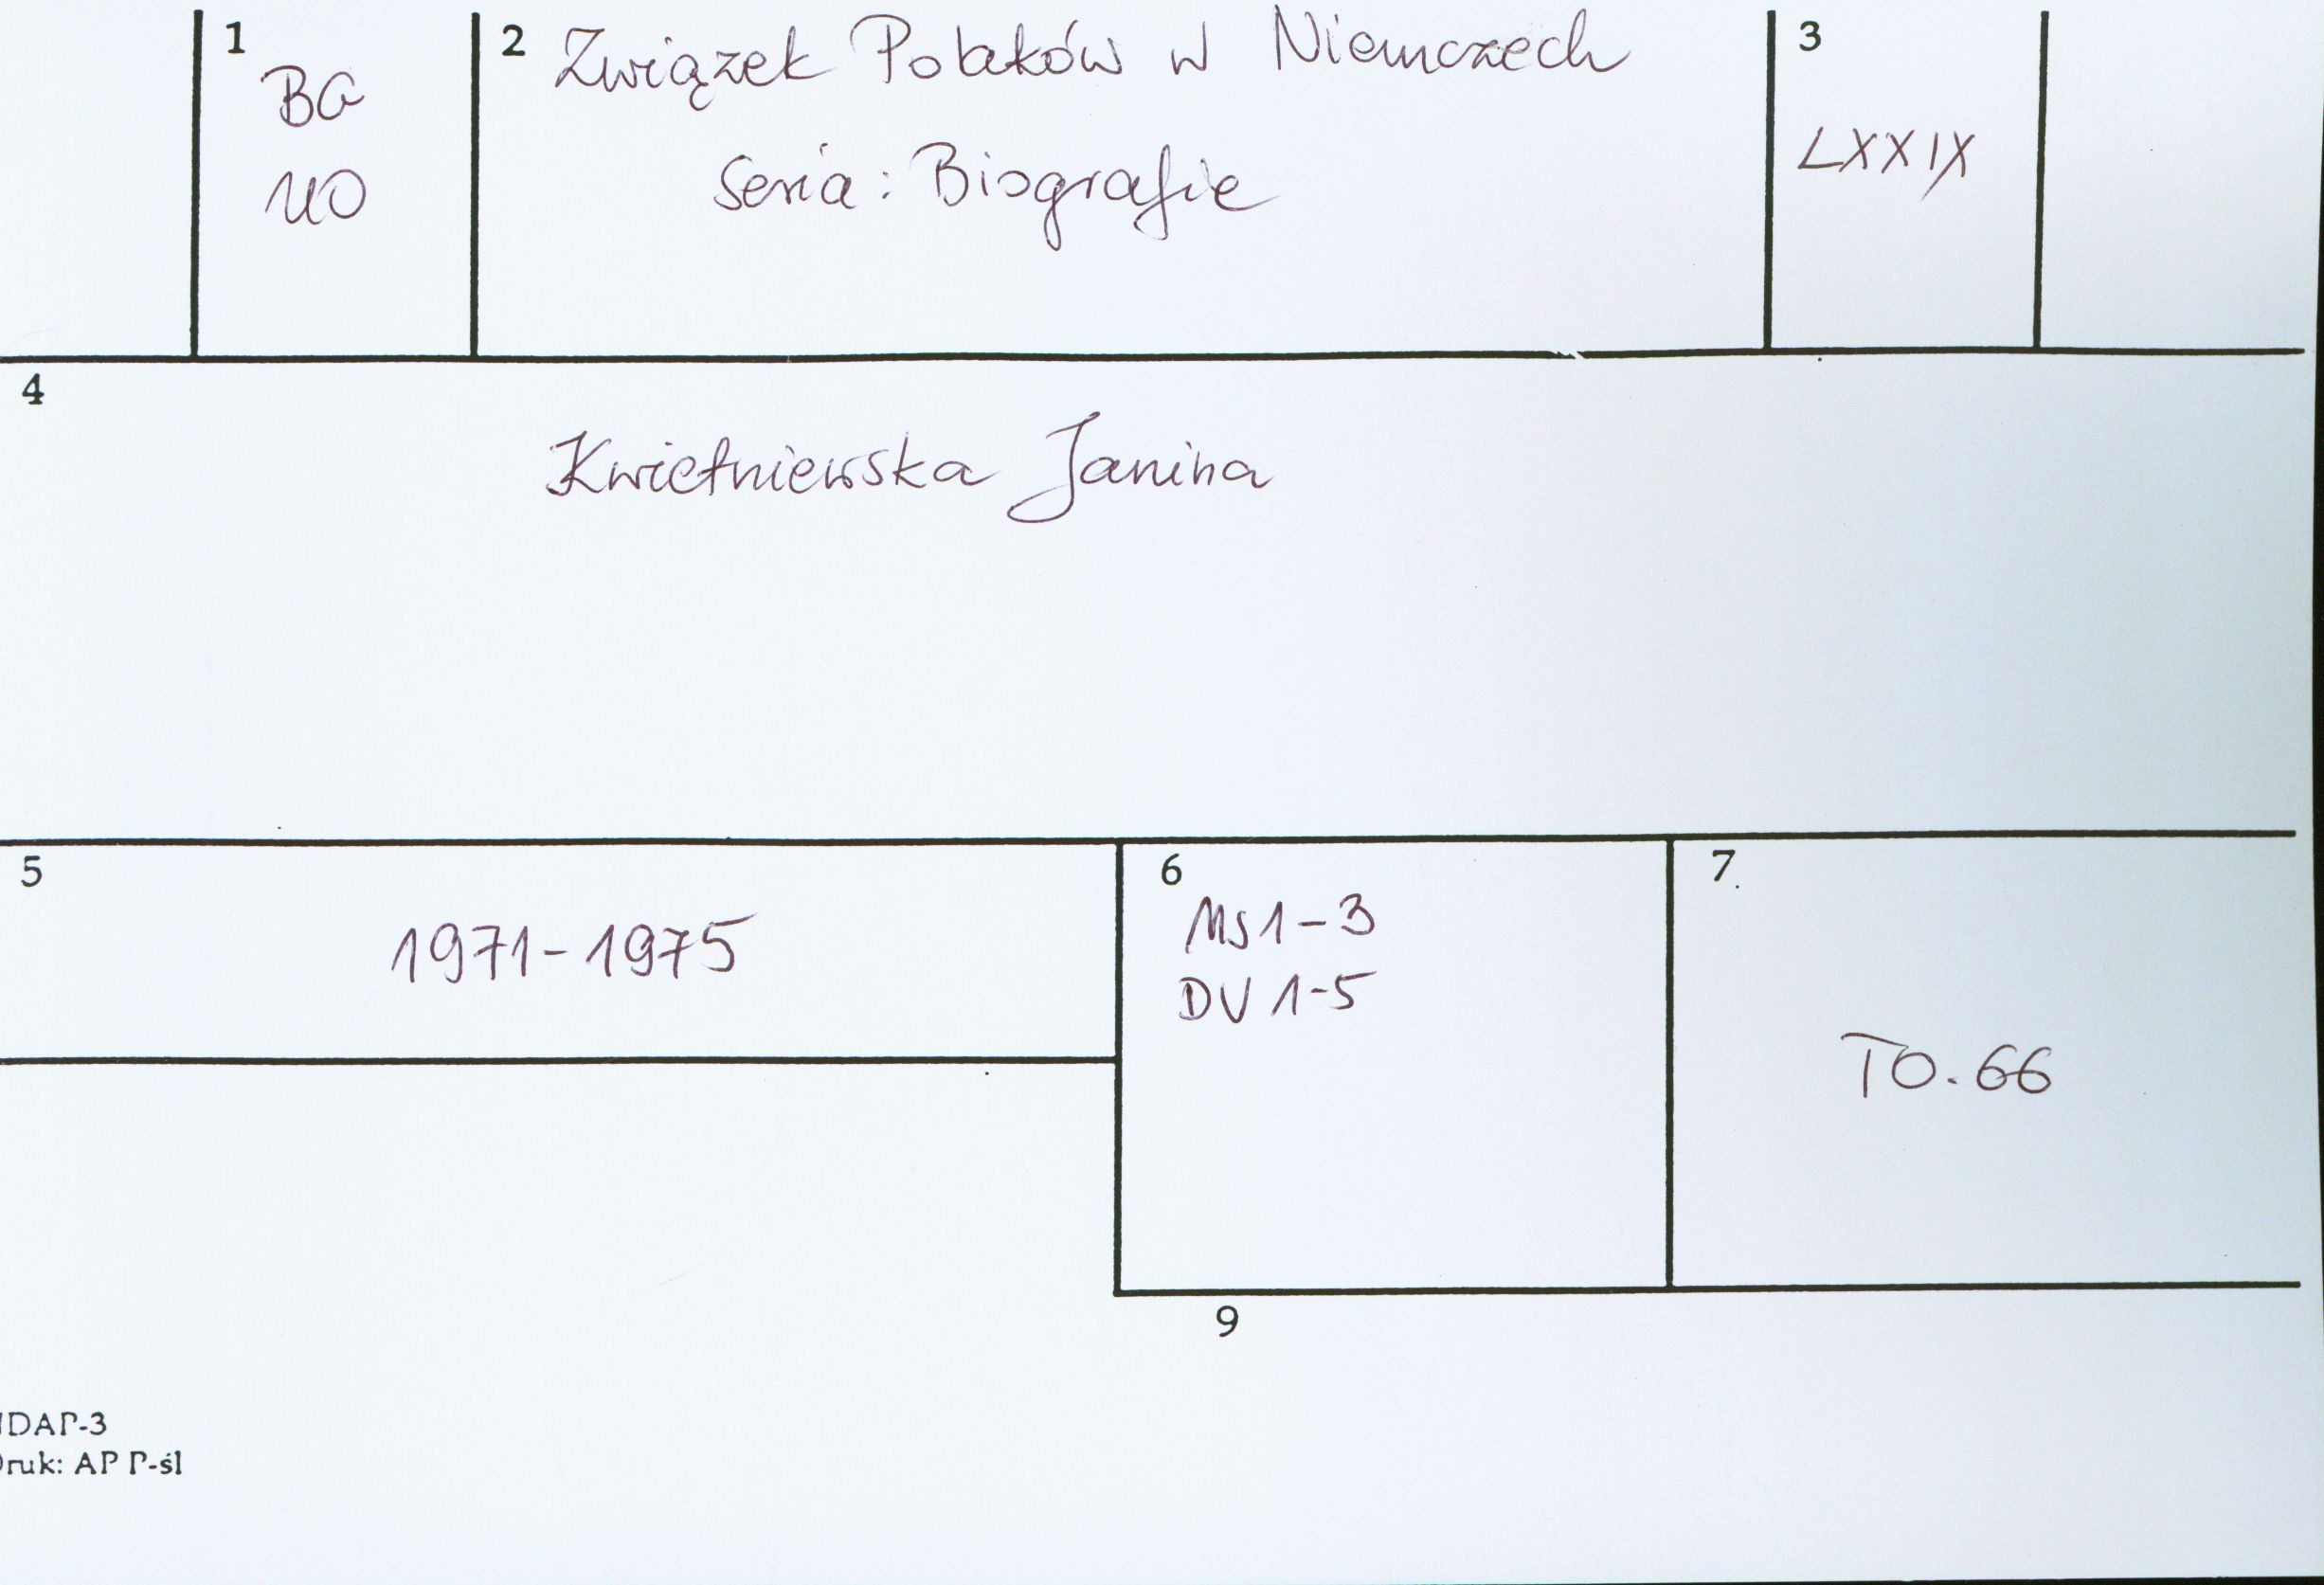 1
BG
UO
2 Związek Polaków w Niemczech
Seria: Biografie
3
LXXIX
4
Kwietniewska Janina
5
1971-1975
6
MS 1-3
DV 1-5
7
TO. 66
9
NDAP-3
Druk: AP P-śl